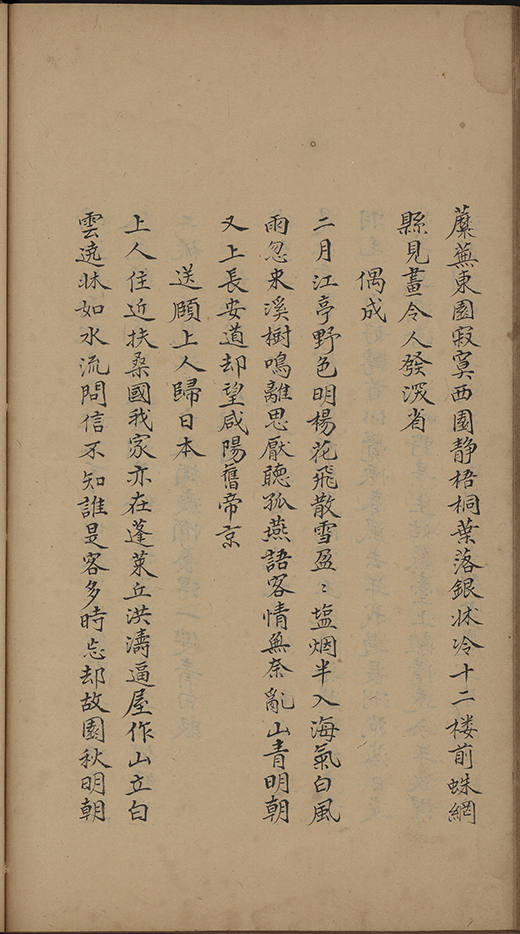 蘪蕪東園寂寞西園静梧桐葉落銀牀冷十二楼前蛛網
縣見畫令人發深省
偶成
二月江亭野色明楊花飛散雪盈〻塩烟半入海氣白風
雨忽来溪樹鳴離思厭聽孤燕語客情無奈亂山青明朝
又上長安道却望咸陽舊帝京
送頤上人歸日本
上人住近扶桑國我家亦在蓬莱丘洪濤逼屋作山立白
雲遶牀如水流問信不知誰是客多時忘却故園秋明朝